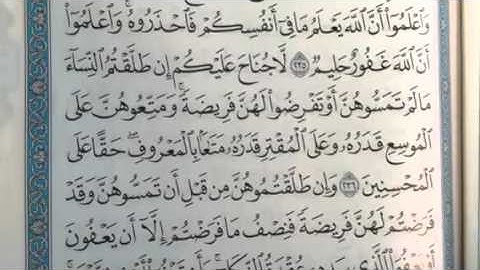 وَٱعۡلَمُوٓاْ أَنَّ ٱللَّهَ يَعۡلَمُ مَا فِيٓ أَنفُسِكُمۡ فَٱحۡذَرُوهُۚ وَٱعۡلَمُوٓاْ
أَنَّ ٱللَّهَ غَفُورٌ حَلِيمٞ ٢٣٥ لَّا جُنَاحَ عَلَيۡكُمۡ إِن طَلَّقۡتُمُ ٱلنِّسَآءَ
مَا لَمۡ تَمَسُّوهُنَّ أَوۡ تَفۡرِضُواْ لَهُنَّ فَرِيضَةٗۚ وَمَتِّعُوهُنَّ عَلَى
ٱلۡمُوسِعِ قَدَرُهُۥ وَعَلَى ٱلۡمُقۡتِرِ قَدَرُهُۥ مَتَٰعَۢا بِٱلۡمَعۡرُوفِۖ حَقًّا عَلَى
ٱلۡمُحۡسِنِينَ ٢٣٦ وَإِن طَلَّقۡتُمُوهُنَّ مِن قَبۡلِ أَن تَمَسُّوهُنَّ وَقَدۡ
فَرَضۡتُمۡ لَهُنَّ فَرِيضَةٗ فَنِصۡفُ مَا فَرَضۡتُمۡ إِلَّآ أَن يَعۡفُونَ